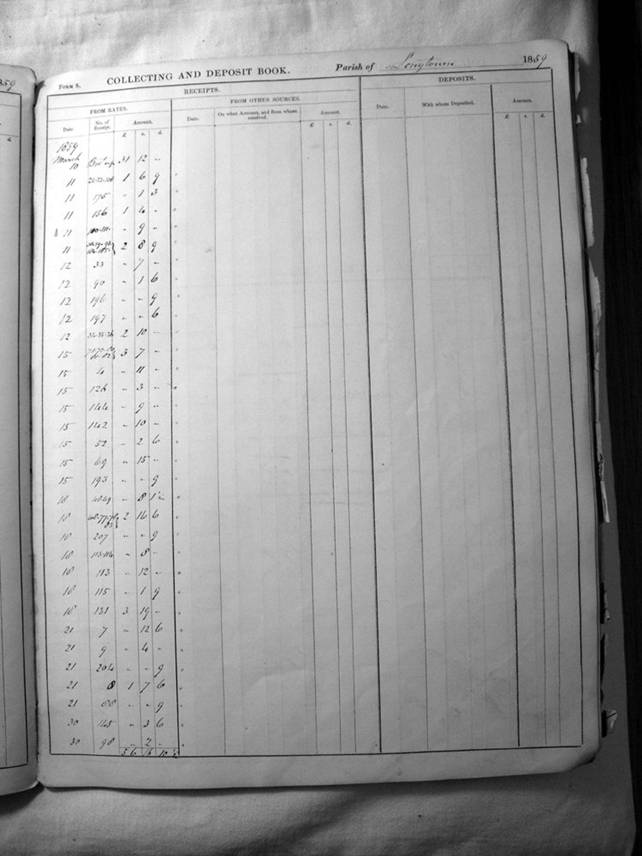 Form 8. COLLECTING AND DEPOSIT BOOK. Parish of Longtown 1859
RECEIPTS. DEPOSITS.
FROM RATES. FROM OTHER SOURCES.
Date No. of Receipt. Amount. Date. On what Account, and from whom received. Amount. Date. With whom Deposited. Amount.
£ s. d. £ s. d. £ s. d.
1859
March
10 31 12 -
11 1 6 9
11 175 - 1 3
11 156 1 4 -
11 - 9 -
11 2 8 9
12 33 - 7 -
12 90 - 1 6
12 196 - - 9
12 197 - - 6
12 2 10 -
15 3 7 -
15 4 - 11 -
15 126 - 3 -
15 144 - 9 -
15 142 - 10 -
15 52 - 2 6
15 69 - 15 -
15 193 - - 9
18 - 8
18 2 16 6
18 207 - - 9
18 - 8 -
18 113 - 12 -
18 115 - 1 9
18 131 3 19 -
21 7 - 12 6
21 9 - 4 -
21 204 - - 9
21 8 1 7 6
21 - - 9
30 145 - 3 6
30 98 - 2 -